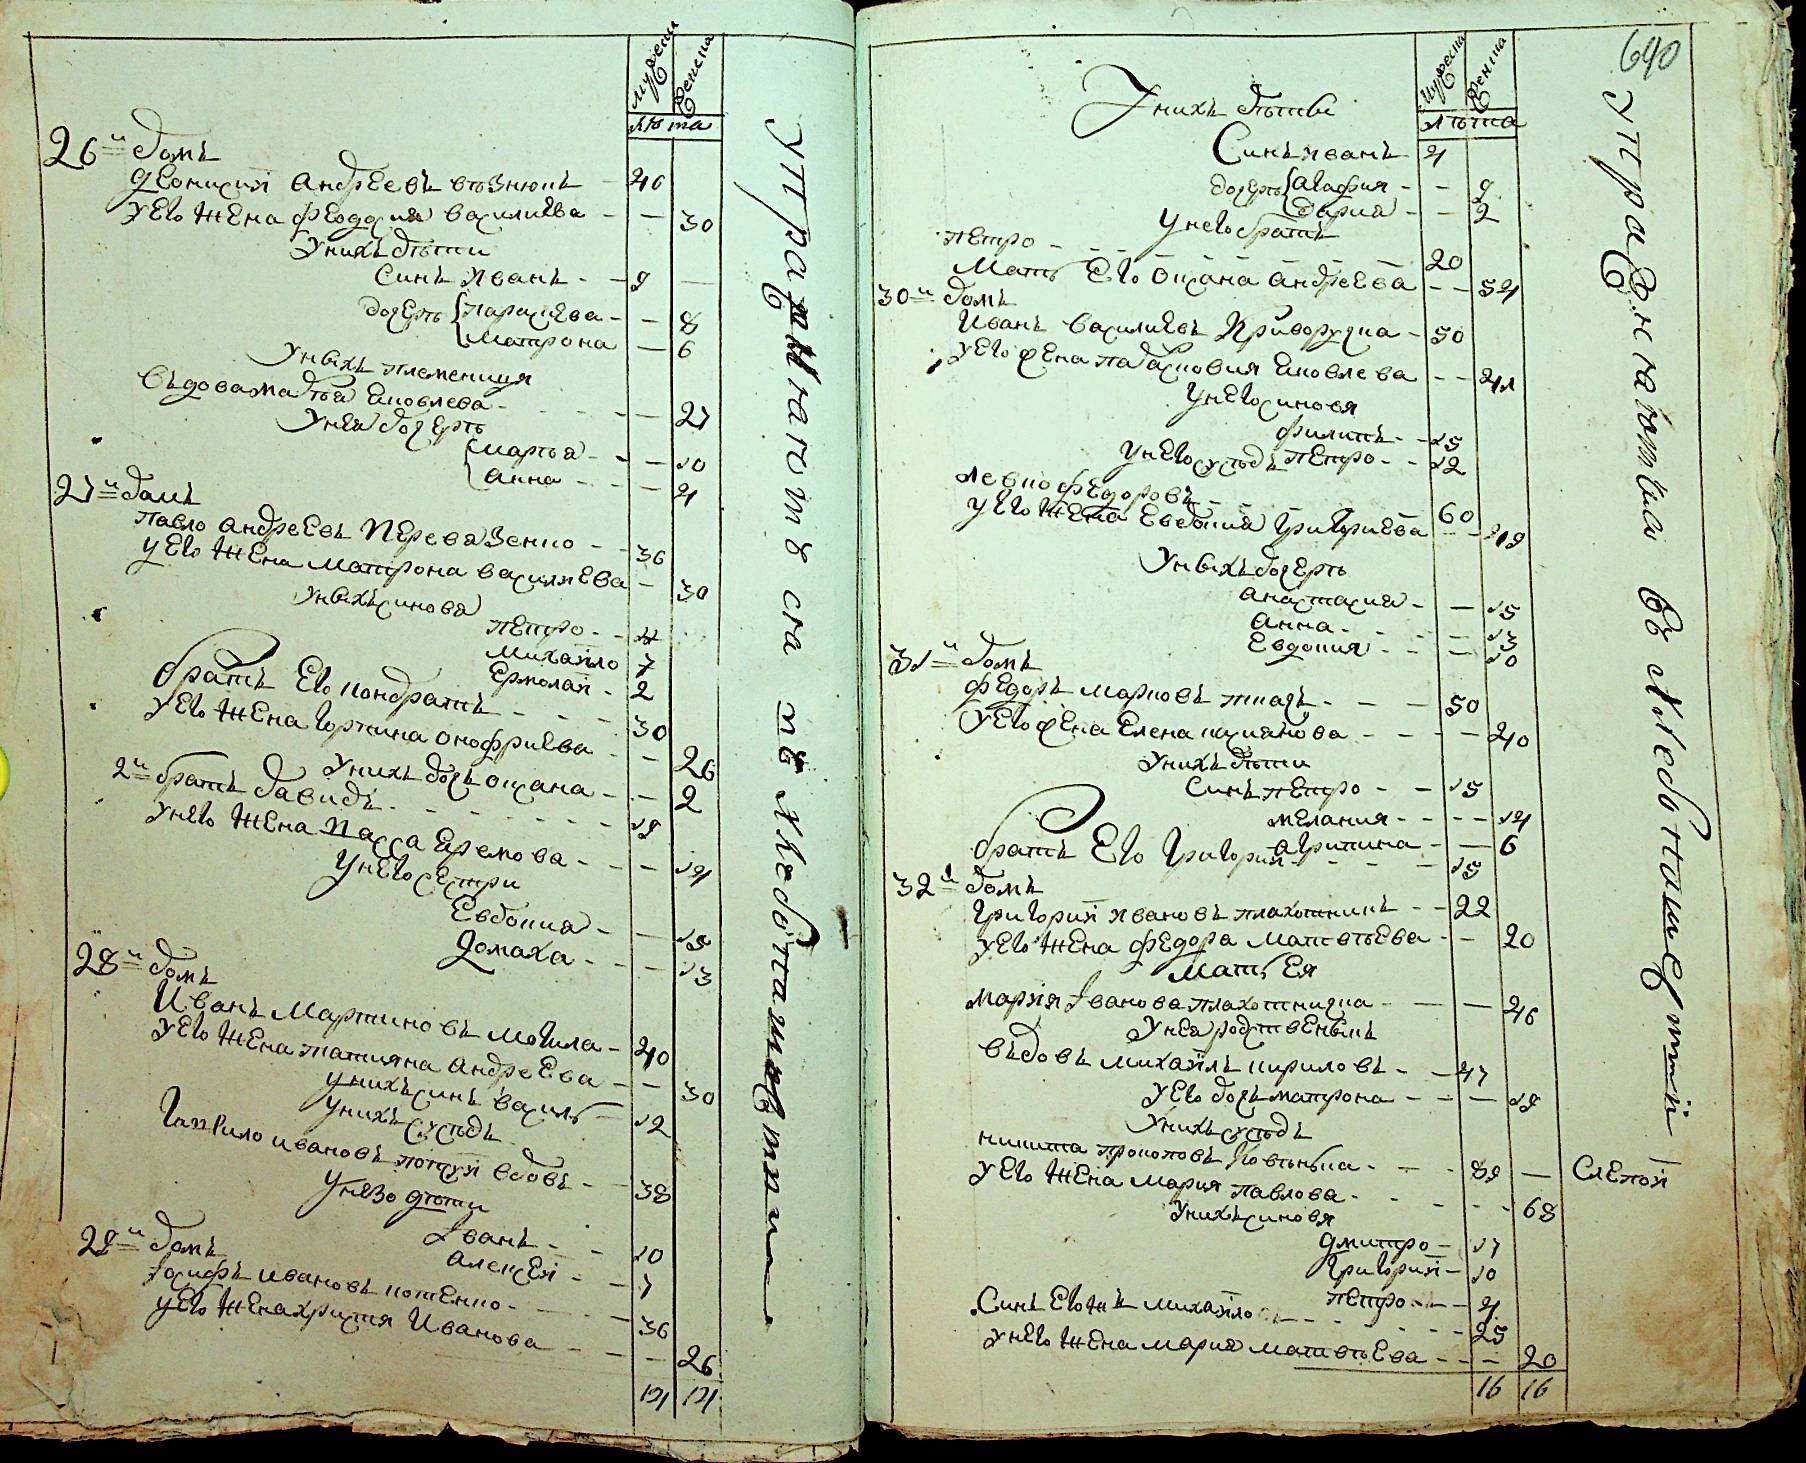 мужеска женска
лѣта
26й домъ
Леонтий Андреевъ вѣзнюкъ 46
у его жена Феодосия василиева 30
у нихъ дѣти
Синъ Иванъ 9
дочерѣ Параскева 8
Матрона 6
у нихъ племеница
въдова Ма Яковлева 27
у нея дочерѣ
Марѳа 10
анна 4
27й домъ
павло андреевъ Перевязенко 36
у его жена матрона василиева 30
у нихъ синовя
петро
михайло 7
Ермолай 2
братъ Его кондратъ 30
у его жена горпина онофриева 26
у нихъ дочъ оксана 2
2й братъ давидъ 19
у него жена Пасса Еремова 19
у него сестри
Евдокия 15
домаха 13
28й домъ
Иванъ Мартиновъ могила 40
у его жена татияна андреева 30
у нихъ синъ василь 12
у нихъ сусѣдъ
Гаврило ивановъ вдовъ 38
у него дѣти
Иванъ 10
алексей 7
29й домъ
Иосифъ ивановъ котенко 36
у его жена христя Иванова 26
упражняются въ хлебопашестви
640
мужеска женска
лѣта
У нихъ дѣтѣ
Синъ иванъ 4
дочерѣ агафия 9
дария 2
у него братъ
петро 20
Матъ Его оксана андреева 54
30й домъ
Иванъ василиевъ Криворучка 50
у его жена Яковлева 41
у него синовя
филипъ 15
петро 12
у него сусѣдъ
левко федоровъ 60
у его жена Евдокия григориева 49
у нихъ дочерѣ
анастасия 15
анна 13
Евдокия 10
31й домъ
федоръ марковъ ткачъ 50
у его жена Елена 40
у нихъ дѣти
Синъ петро 15
мелания 14
агрипина 6
братъ Его григорий 15
32й домъ
григорий ивановъ плахотникъ 22
у его жена федора матвѣева 20
мать Ея
мария иванова плахотничка 46
у нея родственикъ
въдовъ михайлъ кириловъ 47
у его дочъ матрона 19
у нихъ сусѣдъ
никита прокоповъ 89 слепой
у его жена мария павлова 68
у нихъ синовя
дмитро 17
григорий 10
петро 4
Синъ Его михайло 25
у него жена мария матвѣева 20
16 16
упражнаютъся въ хлебопашестви